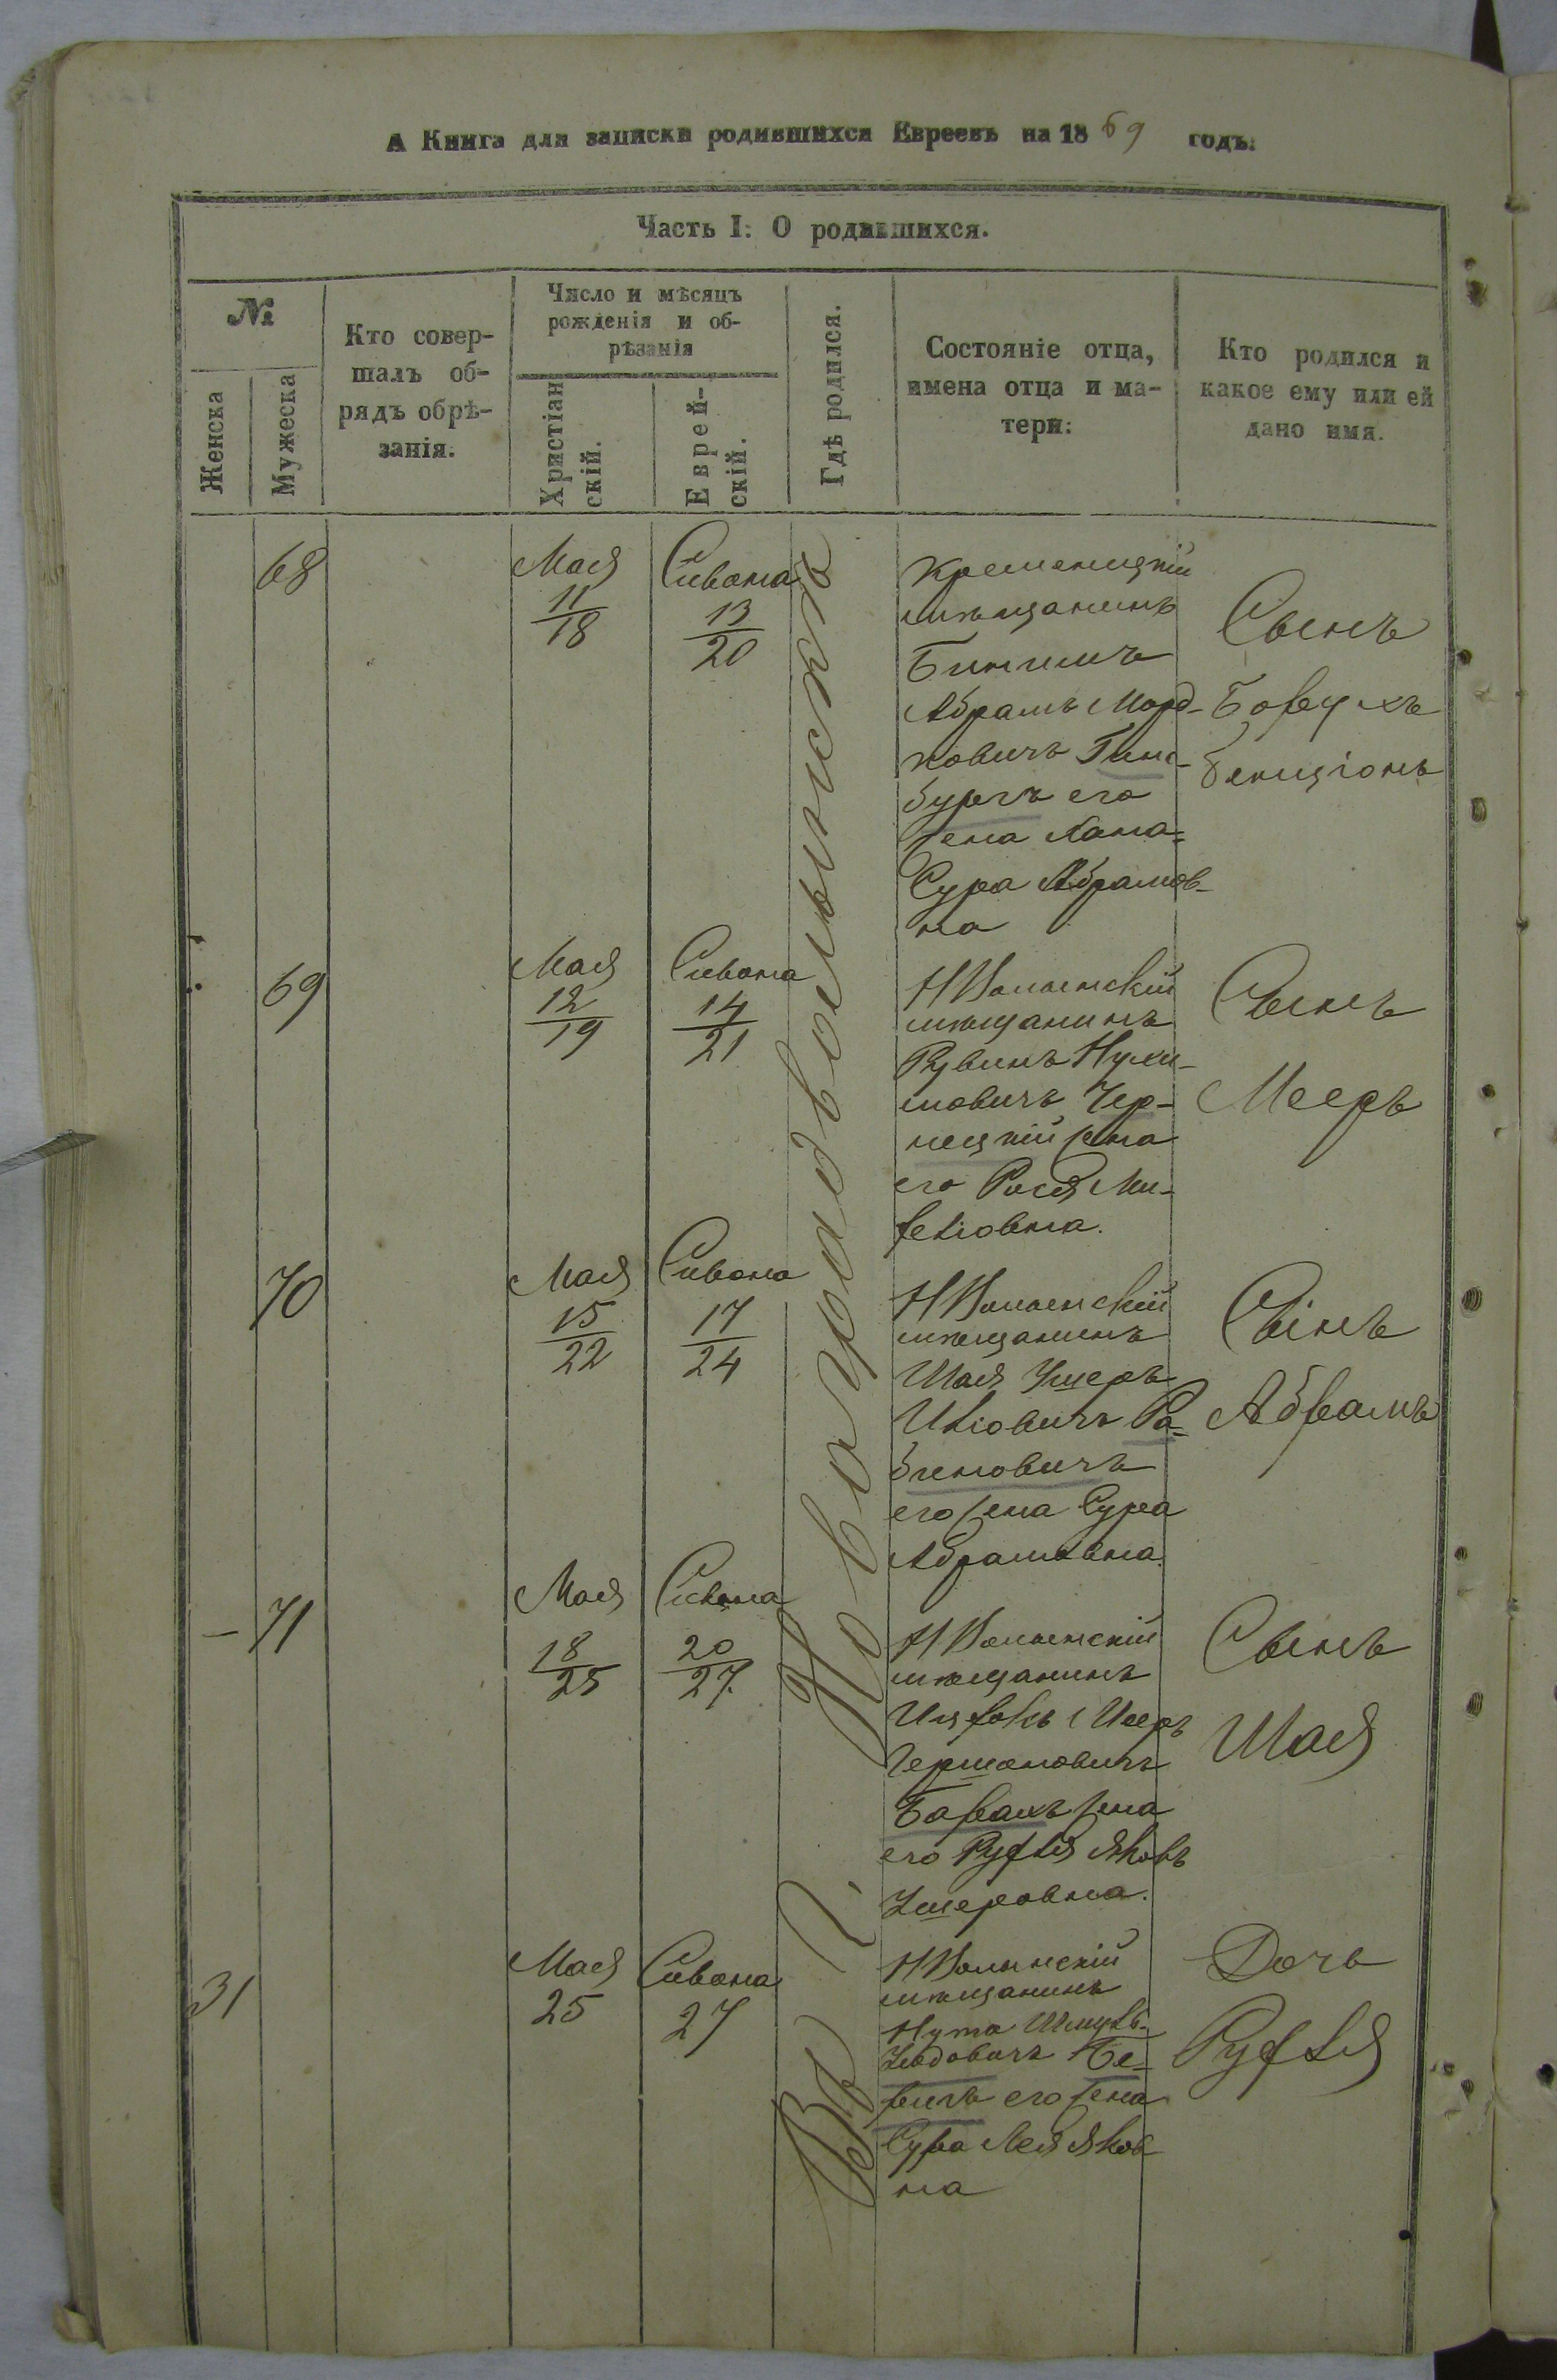 А Книга для записки родившихся Евреевъ на 1869 годъ.
Часть I: О родившихся.
№
Женска
Мужеска
Кто совер-
шалъ об-
рядъ обрѣ-
занія.
Число и мѣсяцъ
рожденія и об-
рѣзанія
Христіан
скій.
Еврей-
скій.
Гдѣ родился.
Состояніе отца,
имена отца и ма-
тери:
Кто родился и
какое ему или ей
дано имя.
Въ Г. Новоградволынскъ
68
Мая
11
18
Сивана
13
20
Кременицкій
мѣщанинъ
Абрамъ Морд-
ковичъ Гинс-
бургъ его
жена Хана-
Сура Абрамов-
на
Сынъ
Борухъ
бенціонъ
69
Мая
12
19
Сивана
14
21
НВолынскій
мѣщанинъ
Рувинъ Нухи-
мовичъ Чер-
нецкій жена
его Рося Ми-
Сынъ
Мееръ
70
Мая
15
22
Сивана
17
24
НВолынскій
мѣщанинъ
Шая Ушеръ
Иковичъ Ра-
биновичъ
его жена Сура
Абрамовна.
Сынъ
Абрамъ
71
Мая
18
25
Сивана
20
27.
НВолынскій
мѣщанинъ
Ицхокъ Мееръ
Гершоновичъ
Барахъ жена
его Рухля Яковъ
Ушеровна.
Сынъ
Шая
31
Мая
25
Сивана
27
НВолынскій
мѣщанинъ
Нута Шмуль-
Іюдовичъ Бе-
его жена
Сура Лея Яков
на
Дочь
Рухля